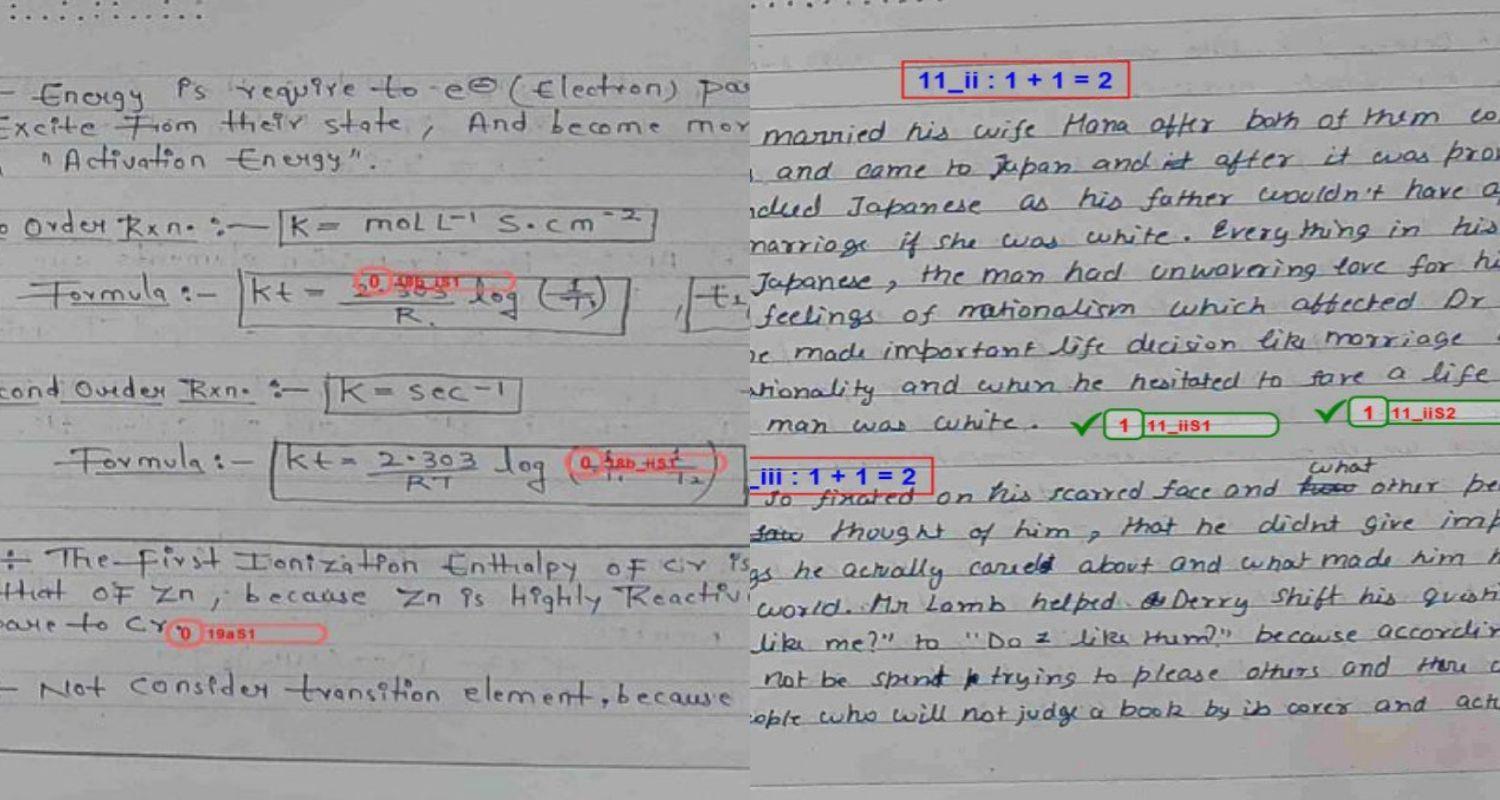 - Energy Is require to e⊖ (Electron) pa
Excite From their state, And become mor
" Activation Energy".
Order Rxn. :- K = mol L⁻¹ S.cm⁻²
Formula :- Kt = 2.303 log
R.
0
cond Order Rxn. :- K = sec⁻¹
Formula :- Kt = 2.303 log
RT
0
÷ The First Ionization Enthalpy OF Cr is
that OF Zn, because Zn is Highly Reactiv
pare to Cr.
0 19aS1
- Not consider transition element, because
11_ii : 1 + 1 = 2
married his wife Hana after both of them co
and came to Japan and after it was pro
Japanese as his father wouldn't have a
marriage if she was white. Everything in his
Japanese, the man had unwavering love for hi
feelings of nationalism which affected Dr
he made important life decision like morriage
ationality and when he hesitated to save a life
man was white.
1 11_iiS1
1 11_iiS2
_iii : 1 + 1 = 2
what
so fixated on his scarred face and other pe
thought of him, that he didnt give imp
gs he actually cared about and what made him h
world. Mr Lamb helped Derry shift his questi
like me?" to "Do I like them?" because accordin
not be spent trying to please others and there a
eople who will not judge a book by its cover and actu